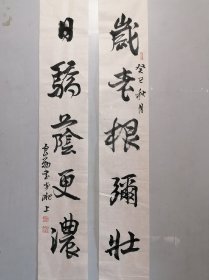 歲老根彌壯
癸巳秋月
日驕蔭更濃